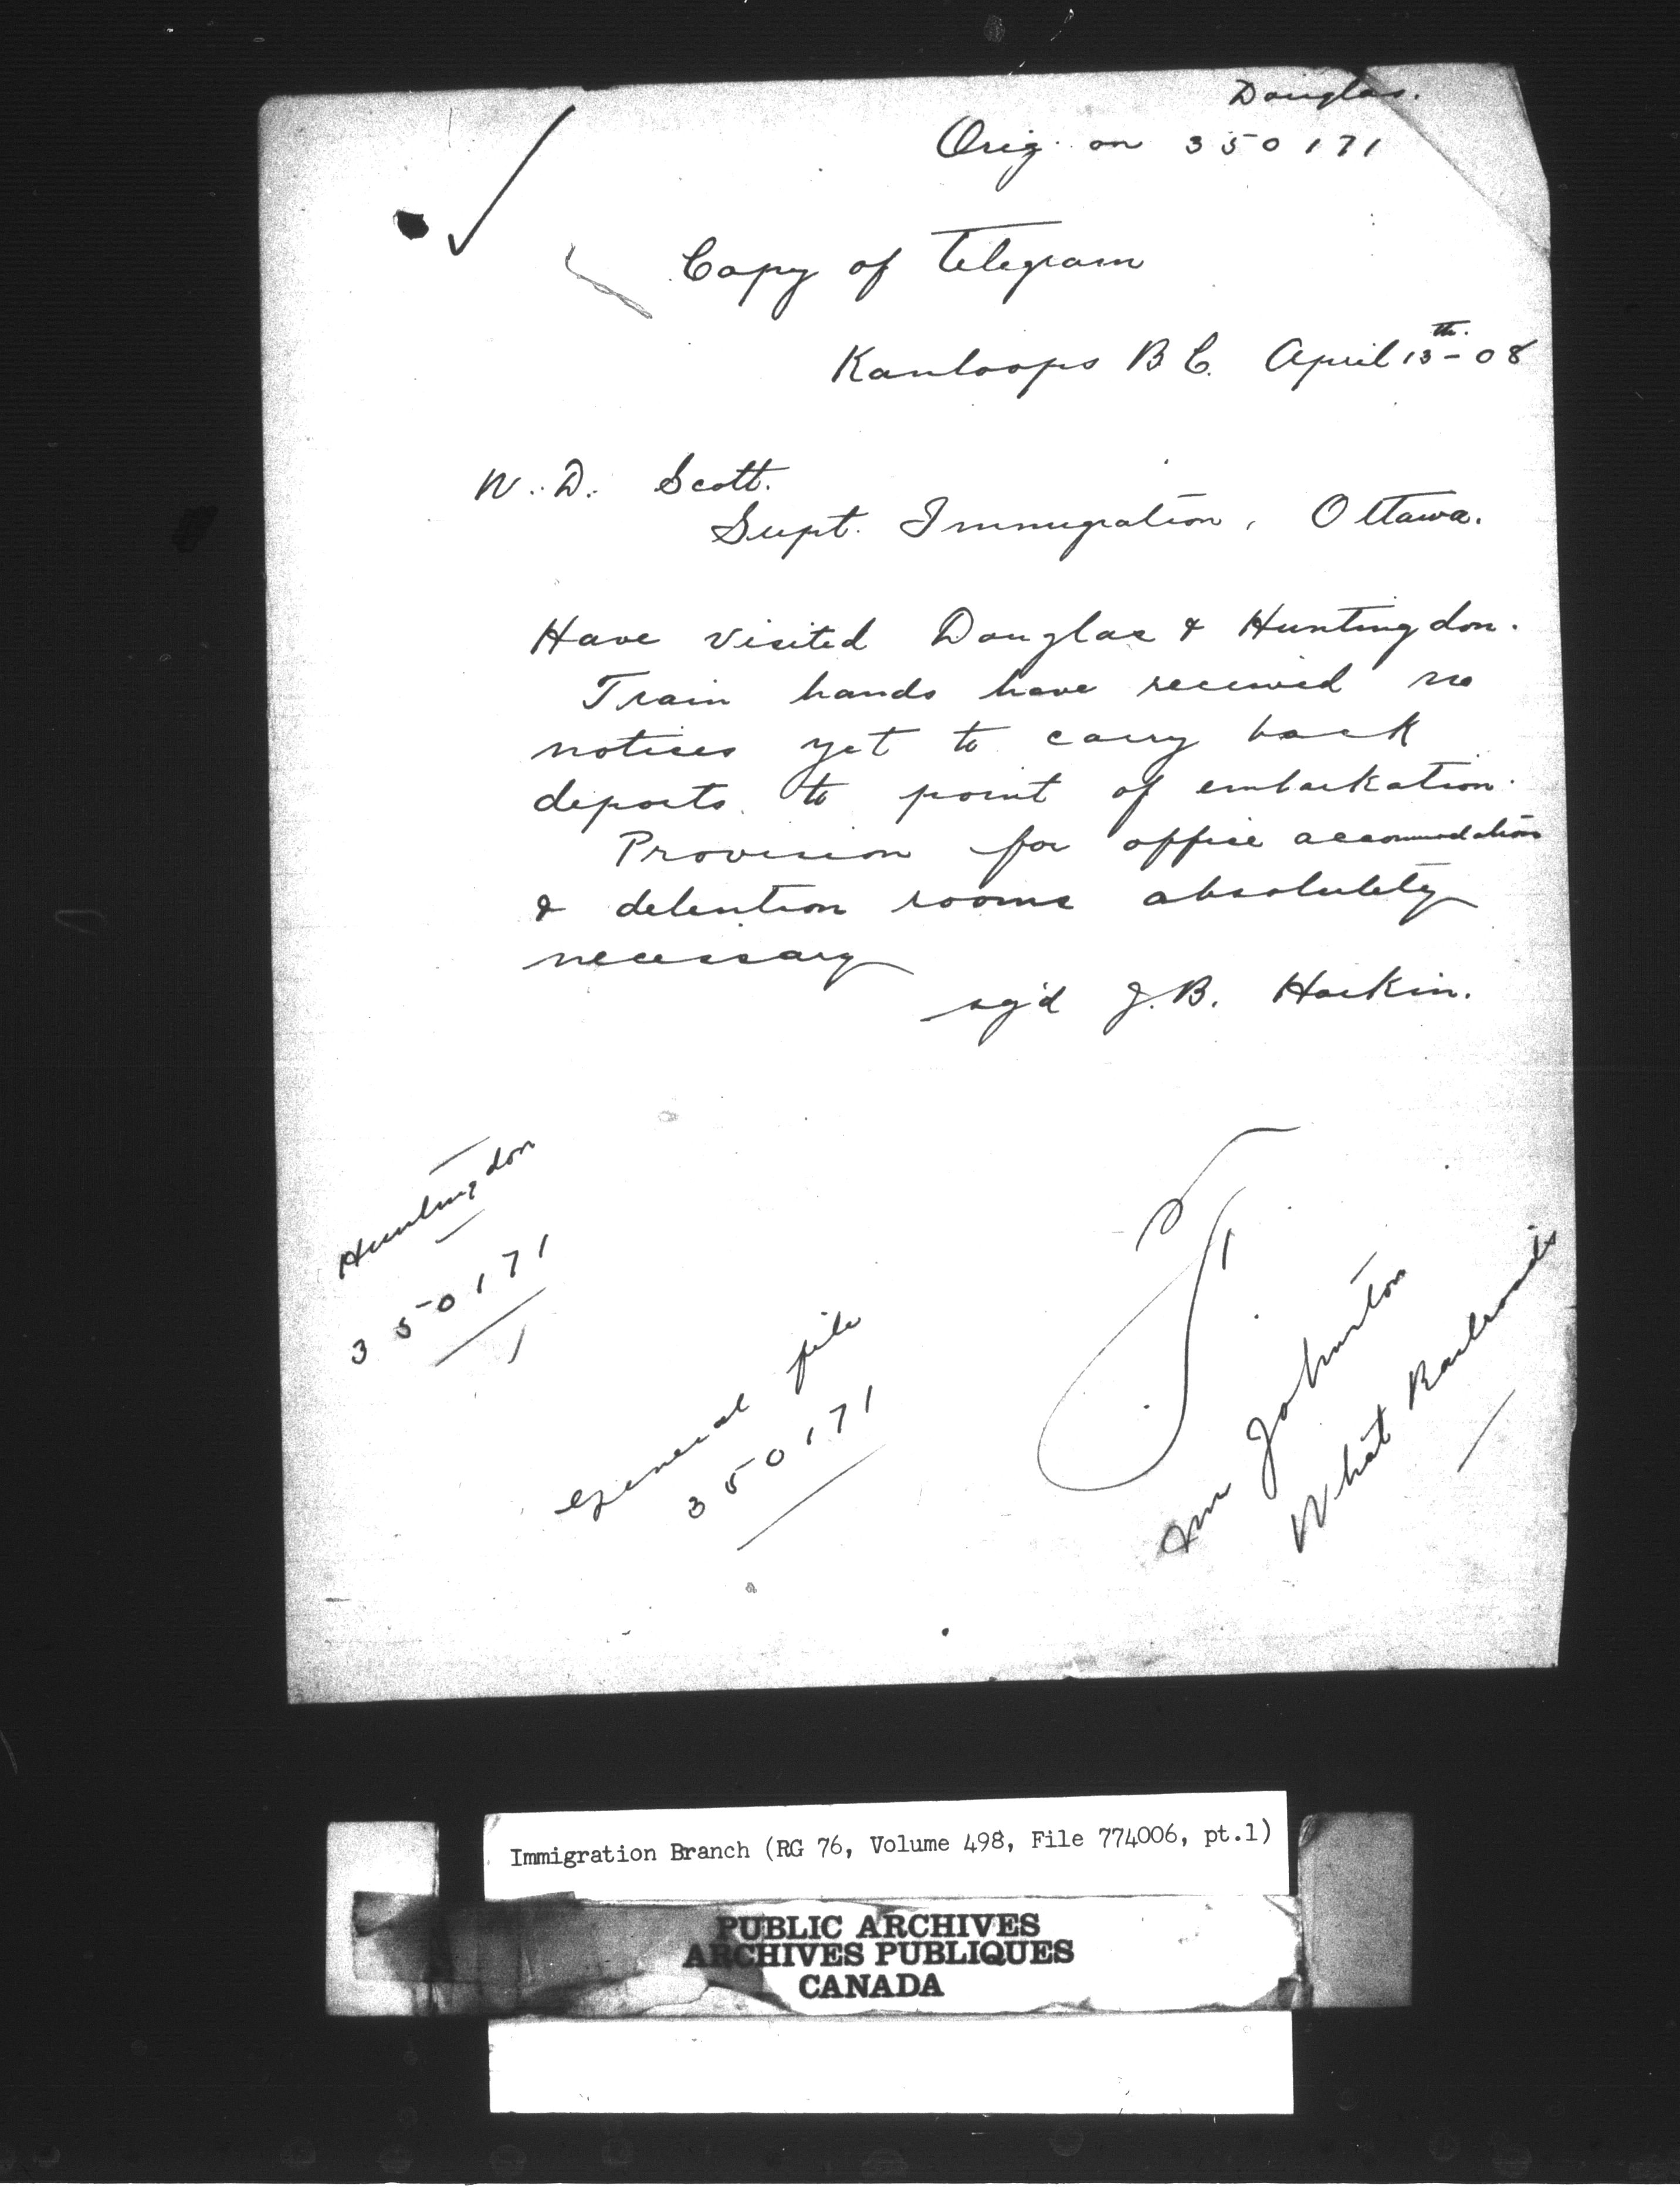 Douglas.
Orig. on 350171
Copy of Telegram
Kamloops B C. April 13th. - 08
W. D. Scott.
Supt. Immigration, Ottawa.
Have visited Douglas & Huntingdon.
Train hands have received no
notices yet to carry back
deports to point of embarkation.
Provision for office accommodation
& detention rooms absolutely
necessary
sg'd J. B. Harkin.
Huntingdon
350171
General file
350171
Johnston
What Railroads
Immigration Branch (RG 76, Volume 498, File 774006, pt.1)
PUBLIC ARCHIVES
ARCHIVES PUBLIQUES
CANADA